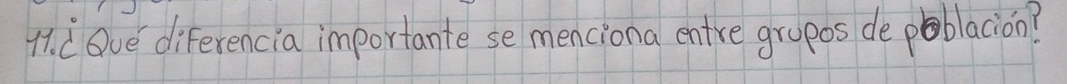 11. ¿Qué diferencia importante se menciona entre grupos de población?